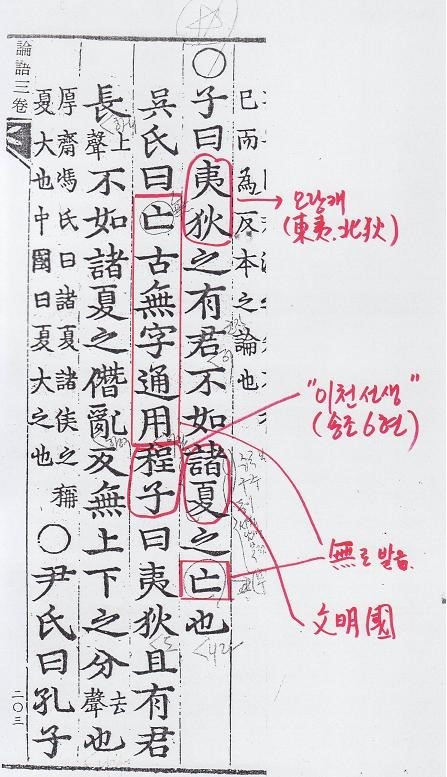 巳而為反本之論也
○子曰夷狄之有君不如諸夏之亡也
吳氏曰亡古無字通用程子曰夷狄且有君
長上聲不如諸夏之僭亂反無上下之分去聲也
厚齋馮氏曰諸夏諸侯之稱
夏大也中國曰夏大之也○尹氏曰孔子
論語三卷
二〇三
오랑캐
(東夷.北狄)
"이천선생"
(송조6현)
無로 발음
文明國